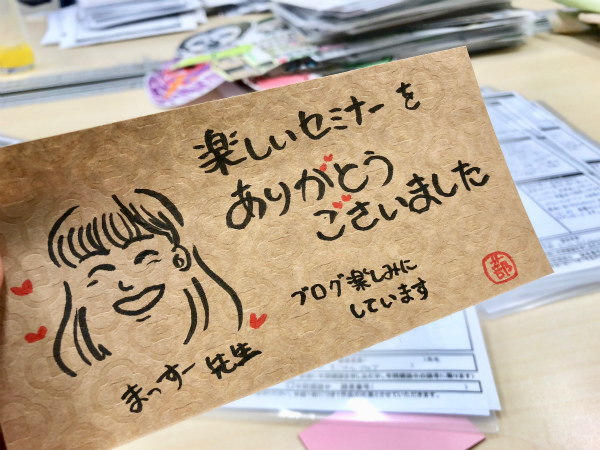 楽しいセミナーを
ありがとう
ございました
ブログ楽しみに
しています
まっすー先生